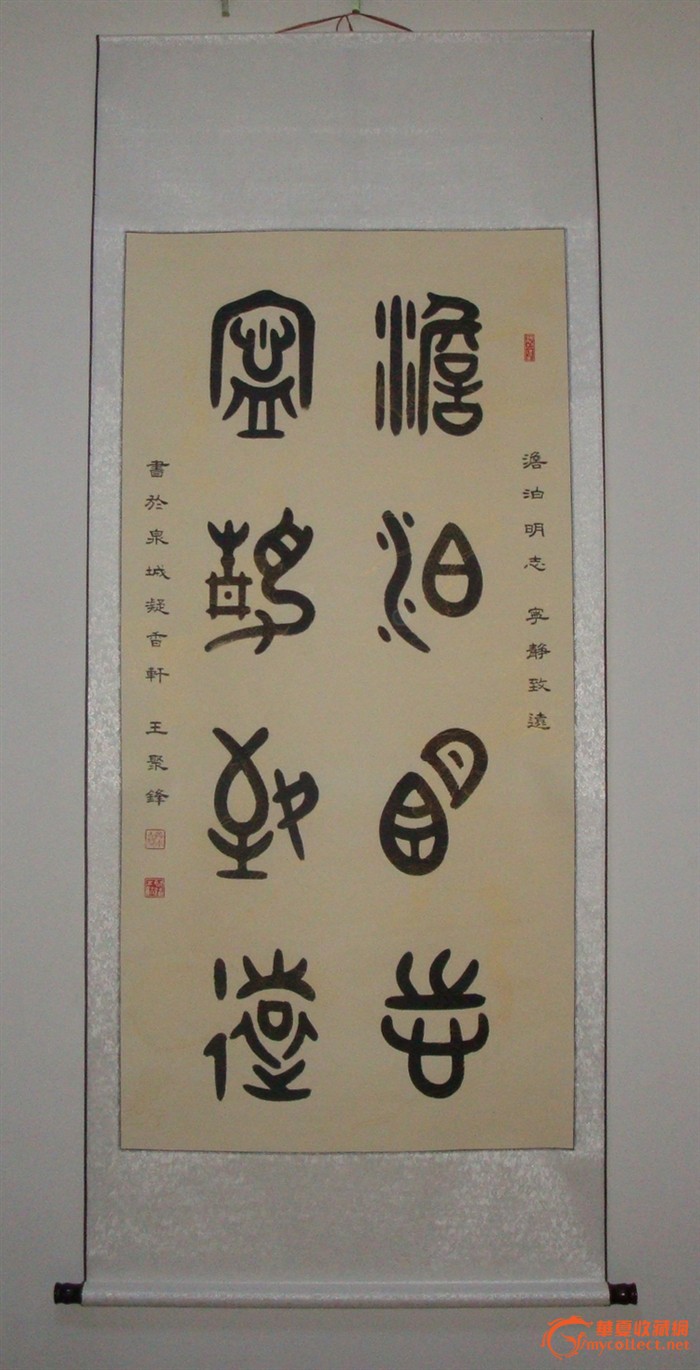 澹泊明志 寧靜致遠
澹泊明志
寧靜致遠
書於泉城凝香軒 王聚鋒
華夏收藏網
mycollect.net